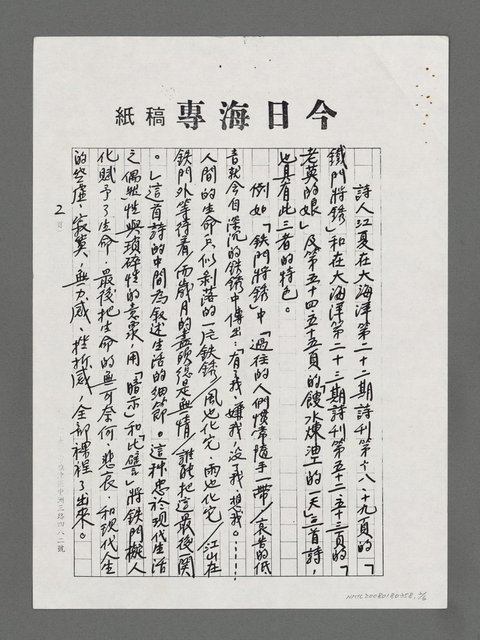 今日海專稿紙
詩人江夏在大海洋第二十二期詩刊第十八、十九頁的「
鐵門將銹」和在大海洋第二十三期詩刊第五十二、五十三頁的「
老莫的娘」及第五十四、五十五頁的「餿水煉油工的一天」三首詩，
也具有此三者的特色。
例如「鐵門將銹」中「過往的人們慣常隨手一帶／哀告的低
音就今自深沉的鐵銹中傳出：「有我，嫌我，沒了我，想我。……
人間的生命只似剝落的一片鐵銹／風也化它，雨也化它／江山在
鐵門外等待着／而歲月的盡頭總是無情／誰能把這最後一關
。」這首詩的中間為敘述生活的細節。這種忠於現代生活
之偶然性與瑣碎性的意象，用「暗示」和「比譬」將鐵門擬人
化賦予了生命，最後把生命的無可奈何、悲哀，和現代人生
的空虛、寂寞、無力感、挫折感，全部裸裎了出來。
2
頁
中洲三路四八二號
NMTL20080180358, 2/6